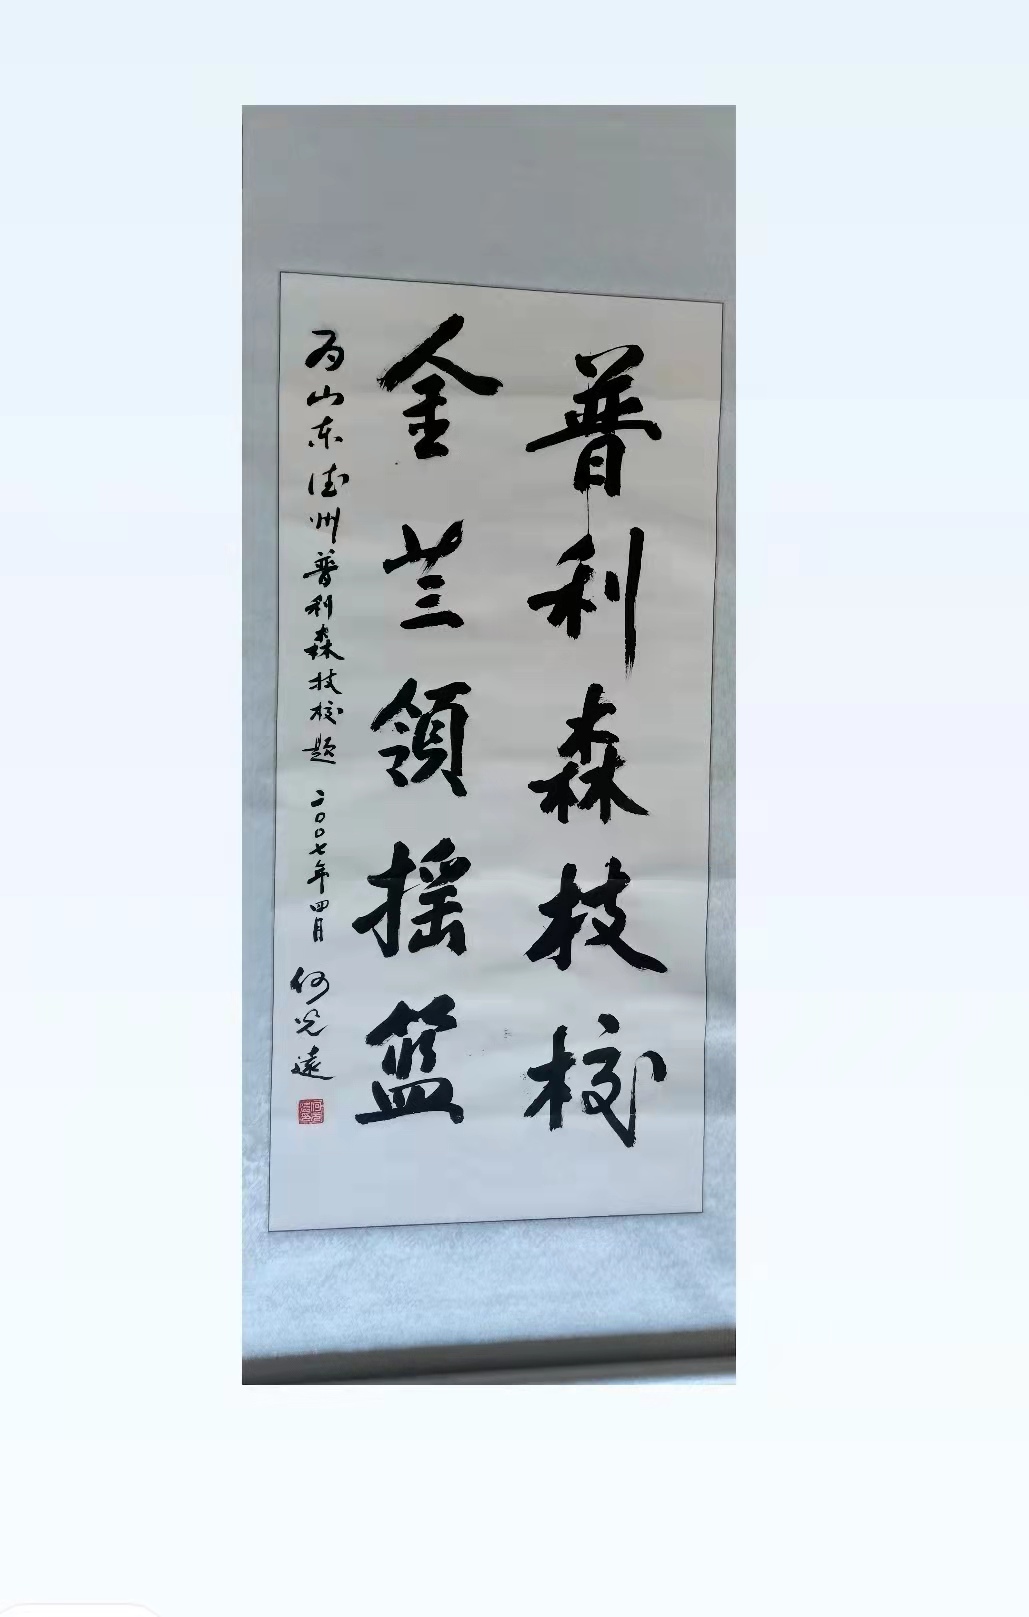 普利森技校
金兰领摇篮
为山东德州普利森技校题 二〇〇七年四月 何光远